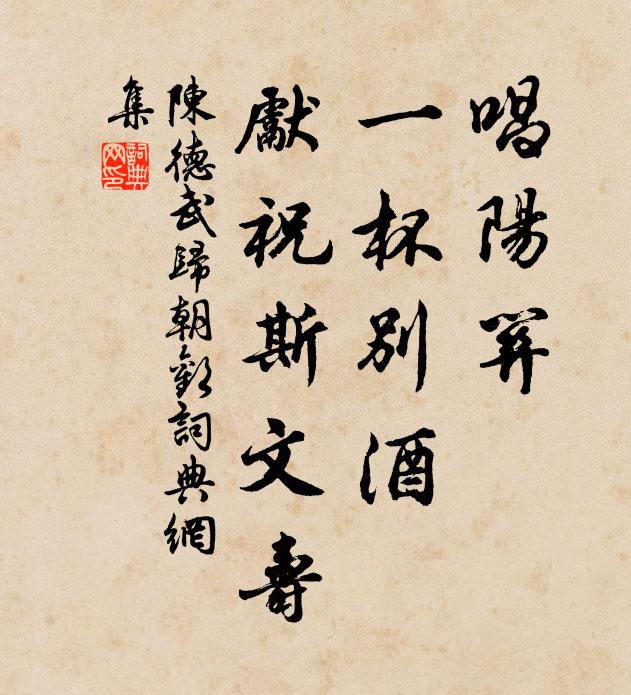 唱陽關
一杯別酒
獻祝斯文壽
陳德武歸朝歡詞典網
集
詞典
网印